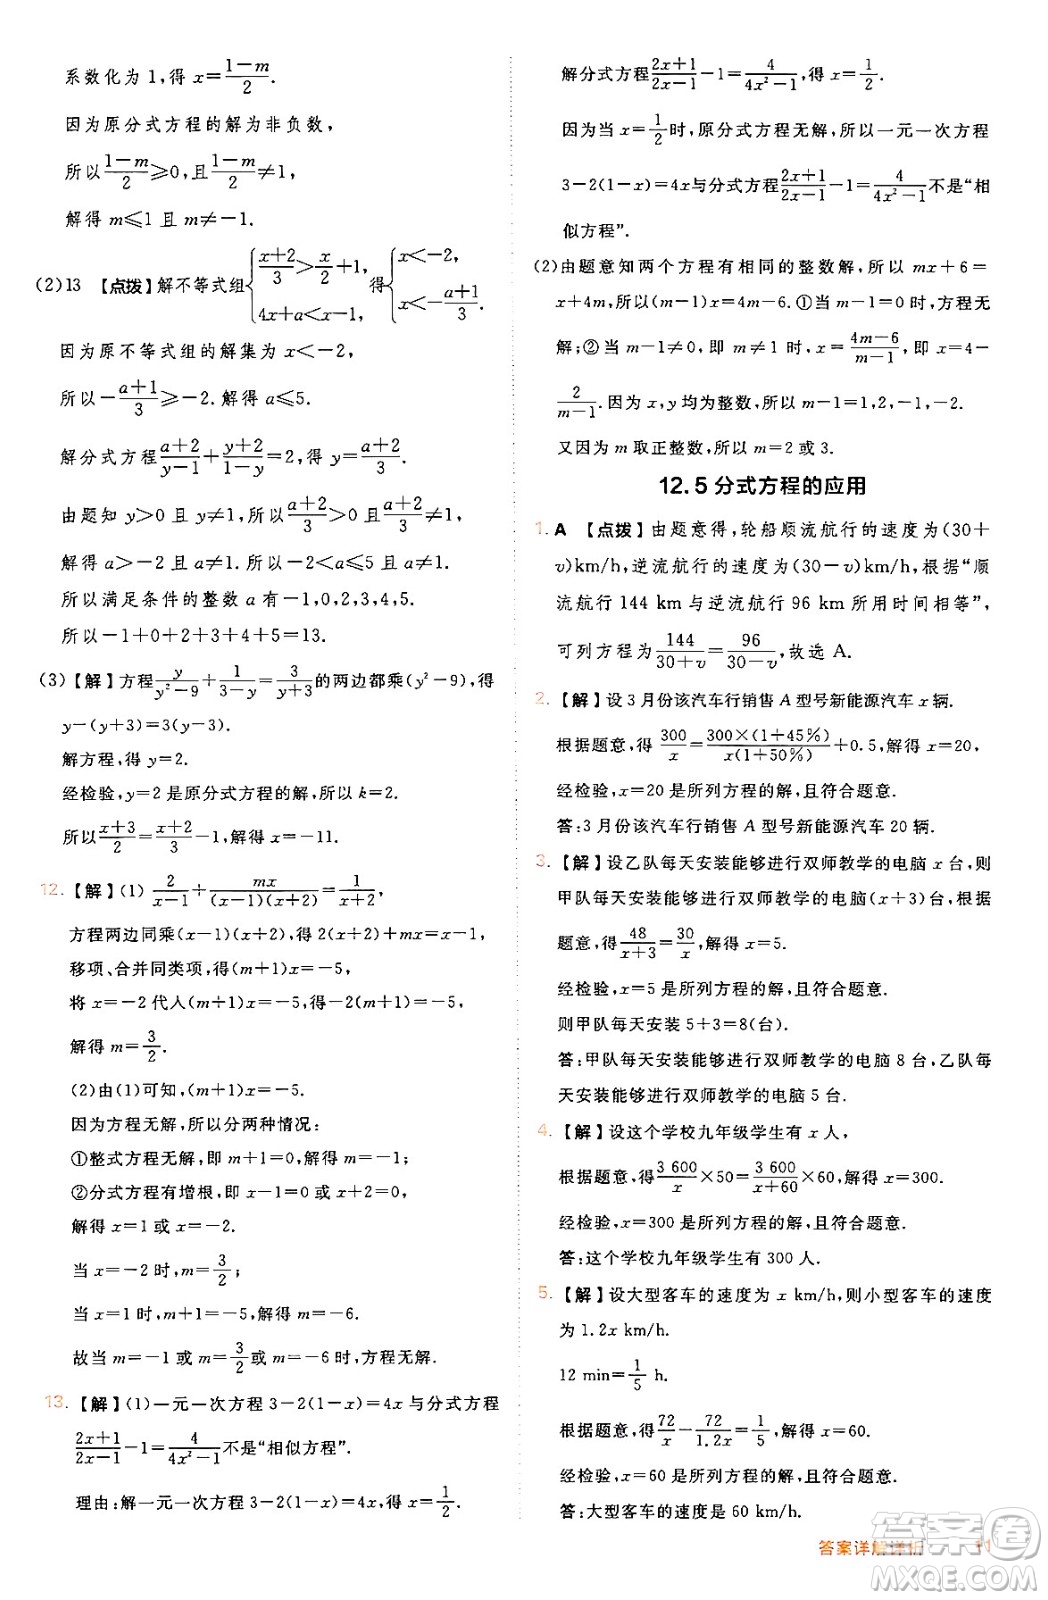 系数化为 1,得 x=\frac{1-m}{2}.
因为原分式方程的解为非负数,
所以\frac{1-m}{2}≥0,且\frac{1-m}{2}≠1,
解得 m≤1 且 m≠-1.
(2)13 【点拨】解不等式组\begin{cases}\frac{x+2}{3}>\frac{x}{2}+1,\\4x+a<x-1,\end{cases}得\begin{cases}x<-2,\\x<-\frac{a+1}{3}.\end{cases}
因为原不等式组的解集为 x<-2,
所以-\frac{a+1}{3}≥-2.解得 a≤5.
解分式方程\frac{a+2}{y-1}+\frac{y+2}{1-y}=2,得 y=\frac{a+2}{3}.
由题知 y>0 且 y≠1,所以\frac{a+2}{3}>0 且\frac{a+2}{3}≠1.
解得 a>-2 且 a≠1.所以-2<a≤5 且 a≠1.
所以满足条件的整数 a 有-1,0,2,3,4,5.
所以-1+0+2+3+4+5=13.
(3)【解】方程\frac{y}{y²-9}+\frac{1}{3-y}=\frac{3}{y+3}的两边都乘(y²-9),得
y-(y+3)=3(y-3).
解方程,得 y=2.
经检验,y=2 是原分式方程的解,所以 k=2.
所以\frac{x+3}{2}=\frac{x+2}{3}-1,解得 x=-11.
12. 【解】(1) \frac{2}{x-1}+\frac{mx}{(x-1)(x+2)}=\frac{1}{x+2},
方程两边同乘(x-1)(x+2),得 2(x+2)+mx=x-1,
移项、合并同类项,得(m+1)x=-5,
将 x=-2 代人(m+1)x=-5,得-2(m+1)=-5,
解得 m=\frac{3}{2}.
(2)由(1)可知,(m+1)x=-5.
因为方程无解,所以分两种情况:
①整式方程无解,即 m+1=0,解得 m=-1;
②分式方程有增根,即 x-1=0 或 x+2=0,
解得 x=1 或 x=-2.
当 x=-2 时,m=\frac{3}{2};
当 x=1 时,m+1=-5,解得 m=-6.
故当 m=-1或 m=\frac{3}{2}或 m=-6时,方程无解.
13. 【解】(1)一元一次方程 3-2(1-x)=4x 与分式方程
\frac{2x+1}{2x-1}-1=\frac{4}{4x²-1}不是“相似方程”.
理由:解一元一次方程 3-2(1-x)=4x,得 x=\frac{1}{2}.
解分式方程\frac{2x+1}{2x-1}-1=\frac{4}{4x²-1},得 x=\frac{1}{2}.
因为当 x=\frac{1}{2}时,原分式方程无解,所以一元一次方程
3-2(1-x)=4x与分式方程\frac{2x+1}{2x-1}-1=\frac{4}{4x²-1}不是“相
似方程”.
(2)由题意知两个方程有相同的整数解,所以 mx+6=
x+4m,所以(m-1)x=4m-6.①当 m-1=0 时,方程无
解;②当 m-1≠0,即 m≠1 时,x=\frac{4m-6}{m-1},即 x=4-
\frac{2}{m-1}.因为 x,y 均为整数,所以 m-1=1,2,-1,-2.
又因为 m 取正整数,所以 m=2 或 3.
12.5 分式方程的应用
1. A 【点拨】由题意得,轮船顺流航行的速度为(30+
v)km/h,逆流航行的速度为(30-v)km/h,根据“顺
流航行 144 km 与逆流航行 96 km 所用时间相等”,
可列方程为\frac{144}{30+v}=\frac{96}{30-v},故选 A.
2. 【解】设 3 月份该汽车行销售 A 型号新能源汽车 x 辆.
根据题意,得 \frac{300}{x}=\frac{300×(1+45%)}{x(1+50%)}+0.5,解得 x=20,
经检验,x=20 是所列方程的解,且符合题意.
答:3 月份该汽车行销售 A 型号新能源汽车 20 辆.
3. 【解】设乙队每天安装能够进行双师教学的电脑 x 台,则
甲队每天安装能够进行双师教学的电脑(x+3)台,根据
题意,得\frac{48}{x+3}=\frac{30}{x},解得 x=5.
经检验,x=5 是所列方程的解,且符合题意.
则甲队每天安装 5+3=8(台).
答:甲队每天安装能够进行双师教学的电脑 8 台,乙队每
天安装能够进行双师教学的电脑 5 台.
4. 【解】设这个学校九年级学生有 x 人,
根据题意,得\frac{3 600}{x}×50=\frac{3 600}{x+60}×60,解得 x=300.
经检验,x=300 是所列方程的解,且符合题意.
答:这个学校九年级学生有 300 人.
5. 【解】设大型客车的速度为 x km/h,则小型客车的速度
为 1.2x km/h.
12 min=\frac{1}{5} h.
根据题意,得\frac{72}{x}-\frac{72}{1.2x}=\frac{1}{5},解得 x=60.
经检验,x=60 是所列方程的解,且符合题意.
答:大型客车的速度是 60 km/h.
答案详解详析
答案圈
MXQE.COM